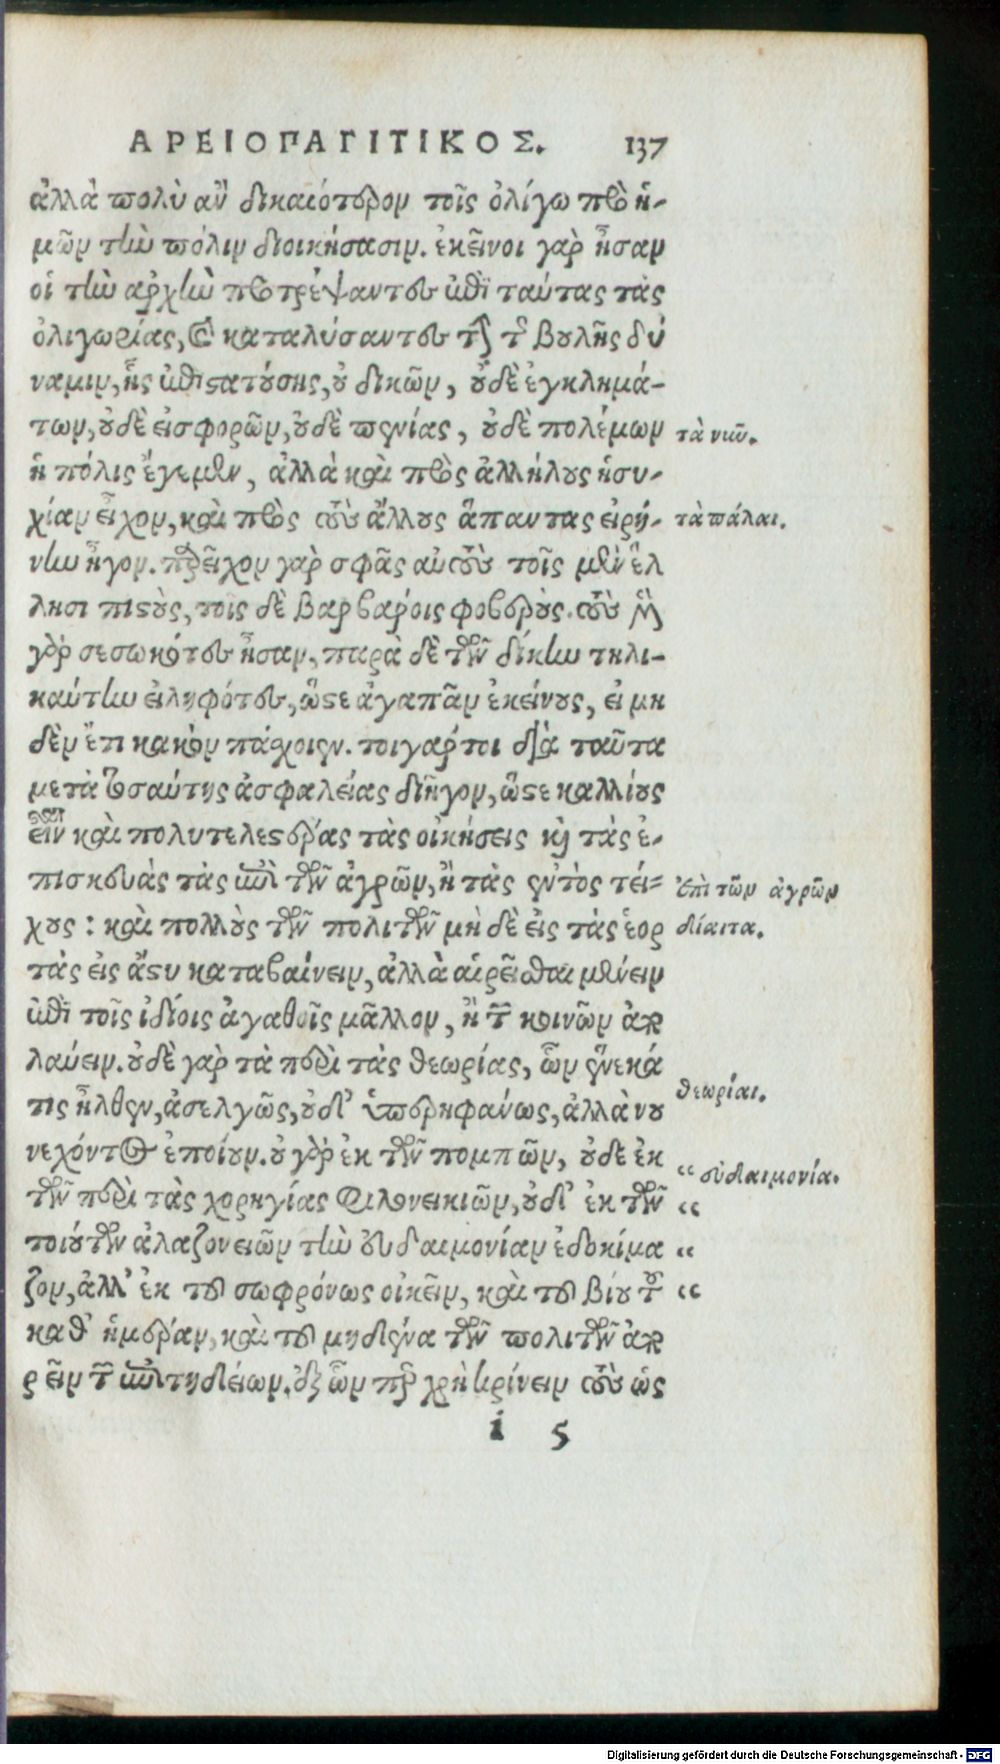 ΑΡΕΙΟΠΑΓΙΤΙΚΟΣ. 137
ἀλλὰ πολὺ ἂν δικαιότερον τοῖς ὀλίγω πρὸ ἡ-
μῶν τὴν πόλιν διοικήσασιν. ἐκεῖνοι γὰρ ἦσαν
οἱ τὴν ἀρχὴν προτρέψαντες ἐπὶ ταύτας τὰς
ὀλιγωρίας, καὶ καταλύσαντες τὴν τῆς βουλῆς δύ
ναμιν, ἧς ἐπιστατούσης, οὐ δικῶν, οὐδὲ ἐγκλημά-
των, οὐδὲ εἰσφορῶν, οὐδὲ πενίας, οὐδὲ πολέμων
τὰ νῦν.
ἡ πόλις ἔγεμεν, ἀλλὰ καὶ πρὸς ἀλλήλους ἡσυ-
χίαν εἶχον, καὶ πρὸς τοὺς ἄλλους ἅπαντας εἰρή-
τὰ πάλαι.
νην ἦγον. παρεῖχον γὰρ σφᾶς αὐτοὺς τοῖς μὲν ἕλ
λησι πιστοὺς, τοῖς δὲ βαρβάροις φοβερούς. τοὺς μὲν
γὰρ σεσωκότες ἦσαν, παρὰ δὲ τῶν δίκην τηλι-
καύτην εἰληφότες, ὥστε ἀγαπᾶν ἐκείνους, εἰ μη
δὲν ἔτι κακὸν πάσχοιεν. τοιγάρτοι διὰ ταῦτα
μετὰ τοσαύτης ἀσφαλείας διῆγον, ὥστε καλλίους
εἶναι καὶ πολυτελεστέρας τὰς οἰκήσεις καὶ τὰς ἐ-
πισκευὰς τὰς ἐπὶ τῶν ἀγρῶν, ἢ τὰς ἐντὸς τεί=
ἐπὶ τῶν ἀγρῶν
χους: καὶ πολλοὺς τῶν πολιτῶν μὴ δὲ εἰς τὰς ἑορ
δίαιτα.
τὰς εἰς ἄστυ καταβαίνειν, ἀλλὰ αἱρεῖσθαι μένειν
ἐπὶ τοῖς ἰδίοις ἀγαθοῖς μᾶλλον, ἢ τῶν κοινῶν ἀπο
λαύειν. οὐδὲ γὰρ τὰ περὶ τὰς θεωρίας, ὧν ἕνεκά
θεωρίαι.
τις ἦλθεν, ἀσελγῶς, οὐδ' ὑπερηφάνως, ἀλλὰ νου
νεχόντως ἐποίουν. οὐ γὰρ ἐκ τῶν πομπῶν, οὐδὲ ἐκ
“ εὐδαιμονία.
τῶν περὶ τὰς χορηγίας φιλονεικιῶν, οὐδ' ἐκ τῶν “
τοιούτων ἀλαζονειῶν τὴν εὐδαιμονίαν ἐδοκίμα “
ζον, ἀλλ' ἐκ τοῦ σωφρόνως οἰκεῖν, καὶ τοῦ βίου τοῦ “
καθ' ἡμέραν, καὶ τοῦ μηδένα τῶν πολιτῶν ἀπο
ρεῖν τῶν ἐπιτηδείων. ἐξ ὧν περ χρὴ κρίνειν τοὺς ὡς
i 5
Digitalisierung gefördert durch die Deutsche Forschungsgemeinschaft - DFG